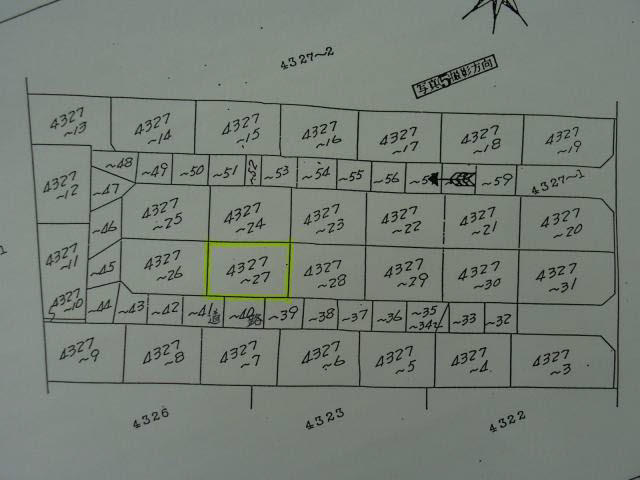 4327~2
写真5撮影方向
4327~13
4327~14
4327~15
4327~16
4327~17
4327~18
4327~19
~48
~49
~50
~51
~52
~53
~54
~55
~56
~59
4327~1
4327~12
~47
4327~25
4327~24
4327~23
4327~22
4327~21
4327~20
~46
4327~11
~45
4327~26
4327~27
4327~28
4327~29
4327~30
4327~31
4327~10
~44
~43
~42
~41
道
~40
路
~39
~38
~37
~36
~35
~34
~33
~32
4327~9
4327~8
4327~7
4327~6
4327~5
4327~4
4327~3
4326
4323
4322